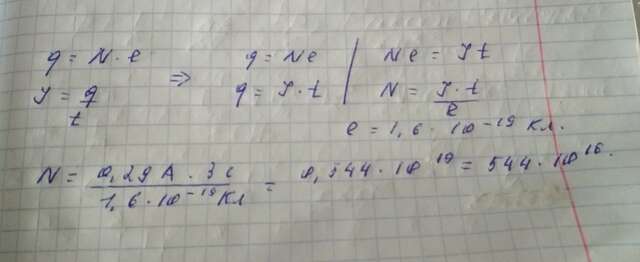 q = N · e ⇒ q = Ne | Ne = Jt
J = q/t q = J · t | N = J · t/e
e = 1,6 · 10⁻¹⁹ Кл.
N = 0,29 А · 3 с / 1,6 · 10⁻¹⁹ Кл = 0,544 · 10¹⁹ = 544 · 10¹⁶.